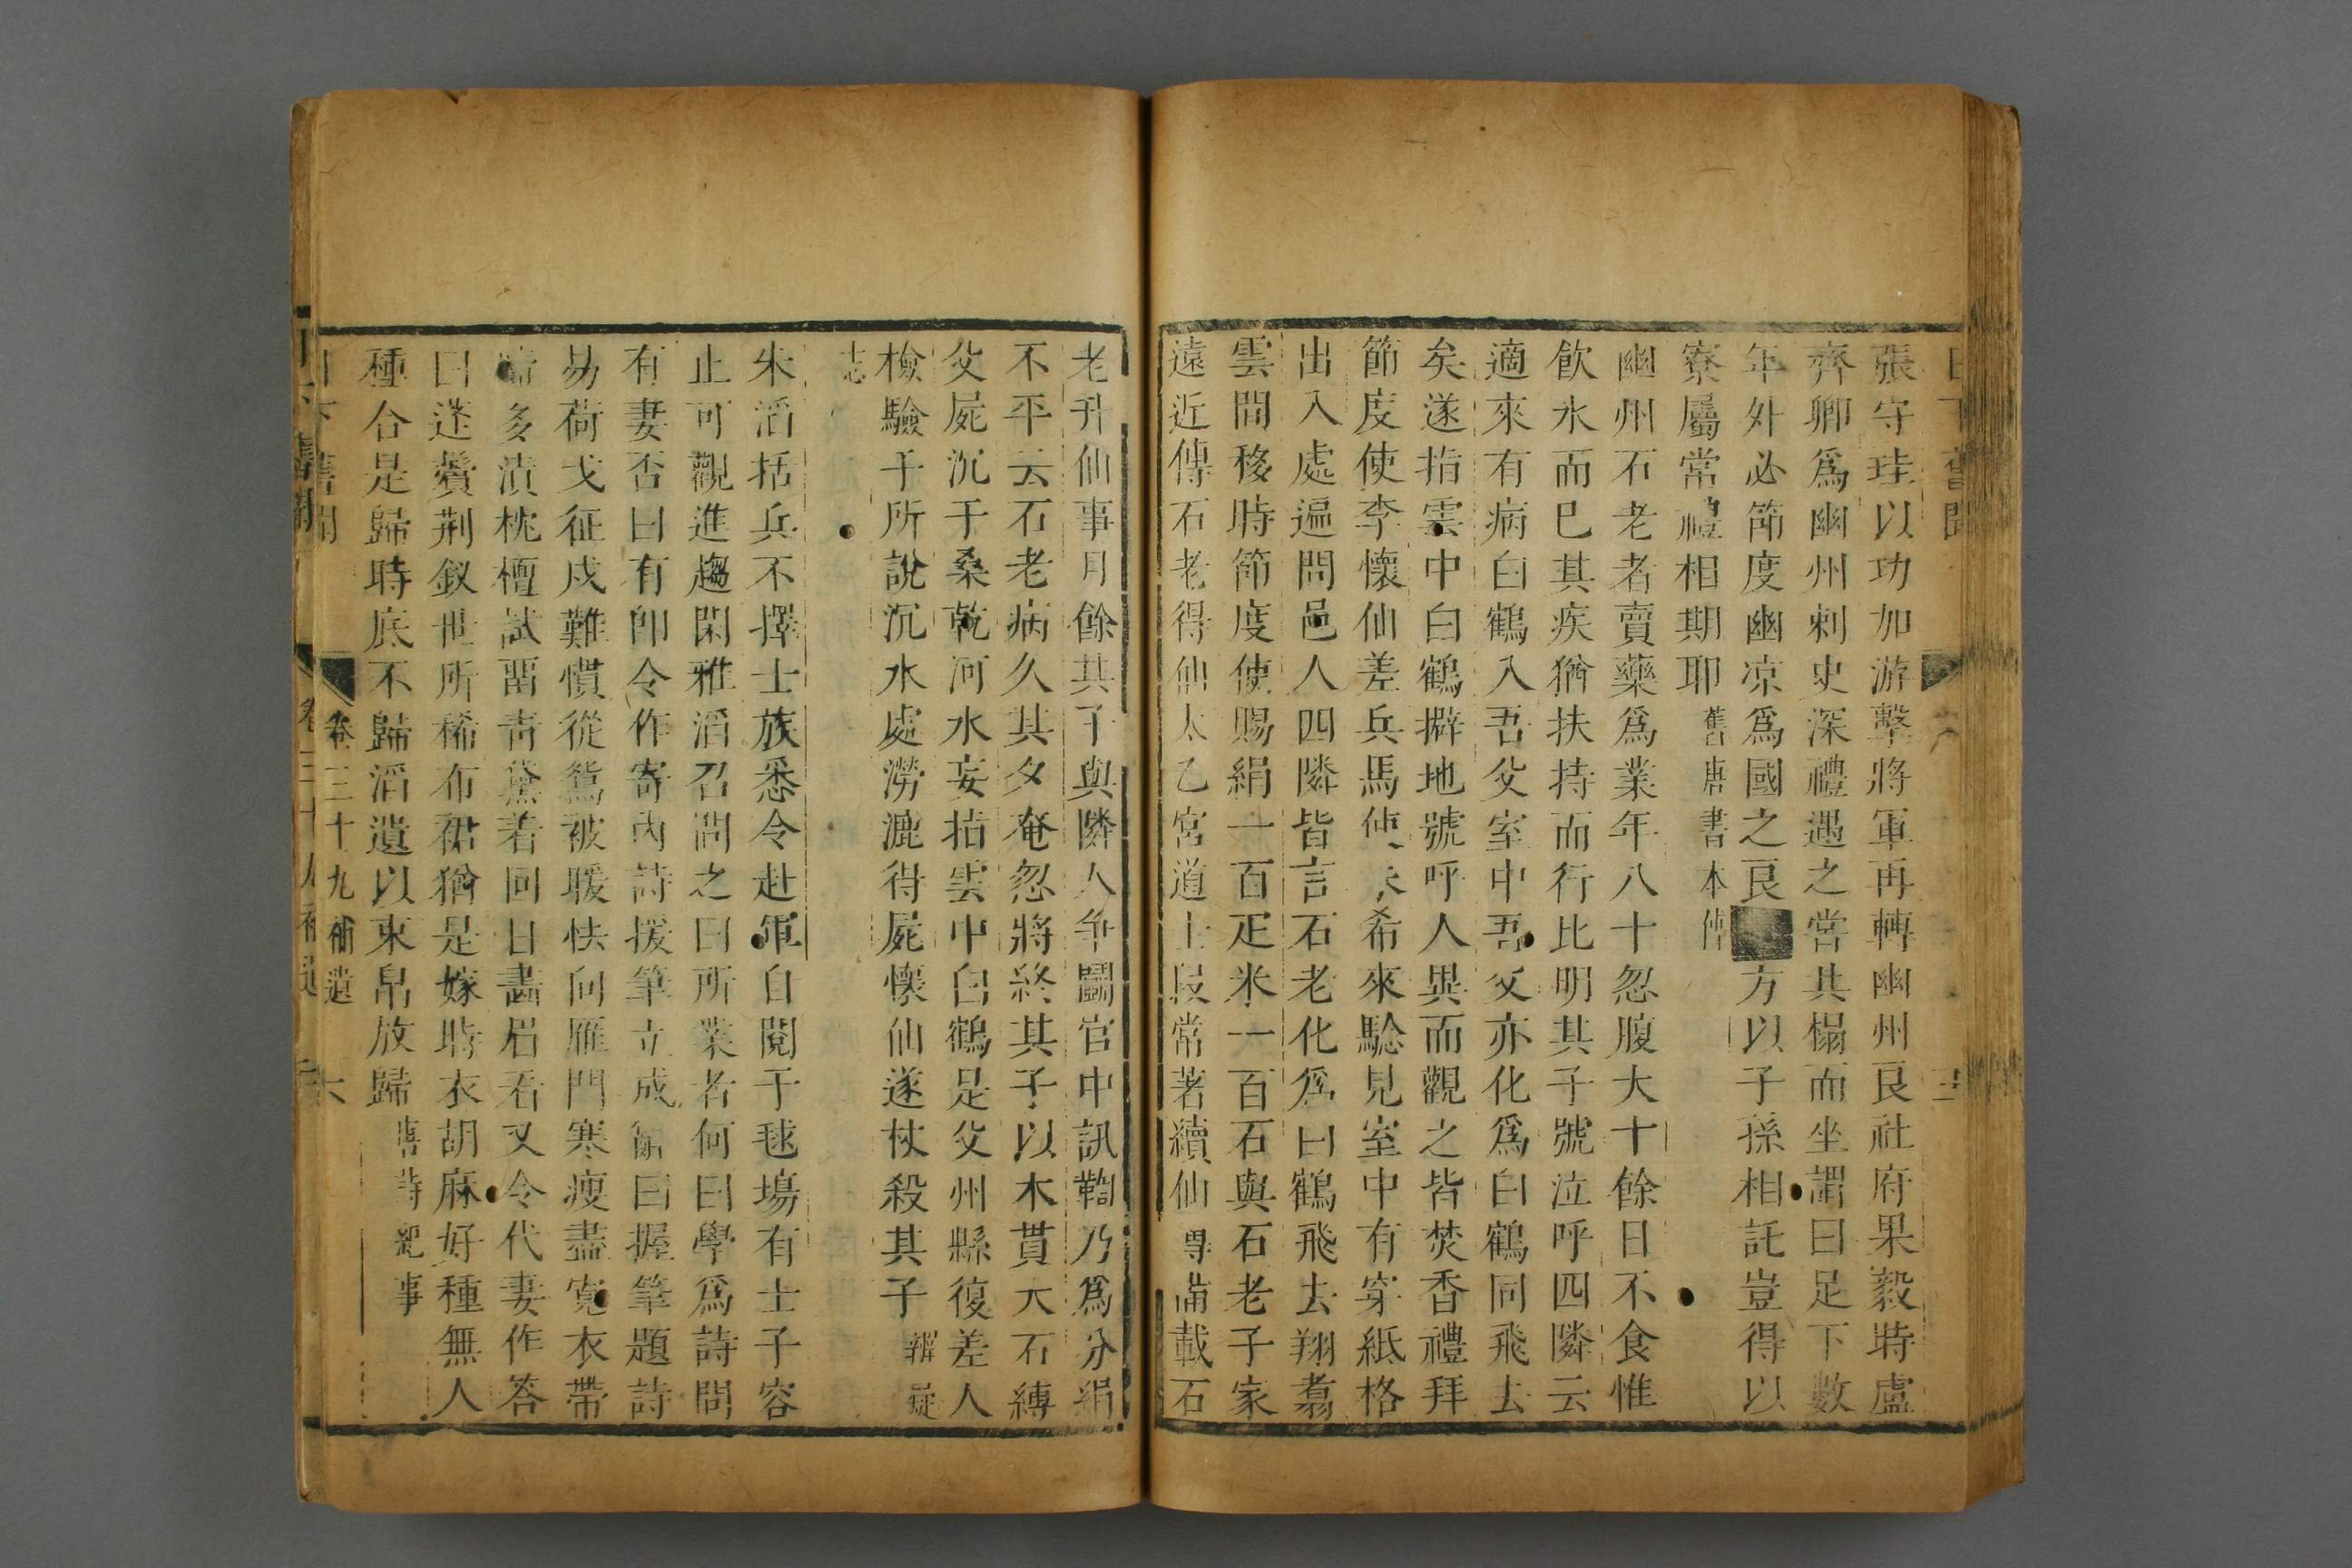 日下舊聞
張守珪以功加游擊將軍再轉幽州良社府果毅時盧
齊卿爲幽州刺史深禮遇之嘗共榻而坐謂曰足下數
年外必節度幽凉爲國之良方以子孫相託豈得以
寮屬常禮相期耶舊唐書本傳
幽州石老者賣藥爲業年八十忽腹大十餘日不食惟
飲水而巳其疾猶扶持而行比明其子號泣呼四隣云
適來有病白鶴入吾父室中吾父亦化爲白鶴同飛去
矣遂指雲中白鶴擗地號呼人異而觀之皆焚香禮拜
節度使李懷仙差兵馬使朱希來騐見室中有穿紙格
出入處遍問邑人四隣皆言石老化爲白鶴飛去翔翥
雲間移時節度使賜絹一百疋米一百石與石老子家
遠近傳石老得仙太乙宮道士段常著續仙傳備載石
老升仙事月餘其子與隣人争鬬官中訊鞫乃爲分絹
不平云石老病久其夕奄忽將終其子以木貫大石縛
父屍沉于桑乾河水妄指雲中白鶴是父州縣復差人
檢驗于所說沉水處澇漉得屍懷仙遂杖殺其子辯疑
志
朱滔括兵不擇士族悉令赴軍自閱于毬塲有士子容
止可觀進趨閑雅滔召問之曰所業者何曰學爲詩問
有妻否曰有卽令作寄内詩援筆立成詞曰握筆題詩
易荷戈征戍難慣從鴛被暖怯向雁門寒瘦盡寛衣帶
啼多漬枕檀試留青黛着回日畵眉看又令代妻作答
曰蓬鬢荆釵世所稀布裙猶是嫁時衣胡麻好種無人
種合是歸時底不歸滔遺以束帛放歸唐詩紀事
日下舊聞 卷三十九補遺 六